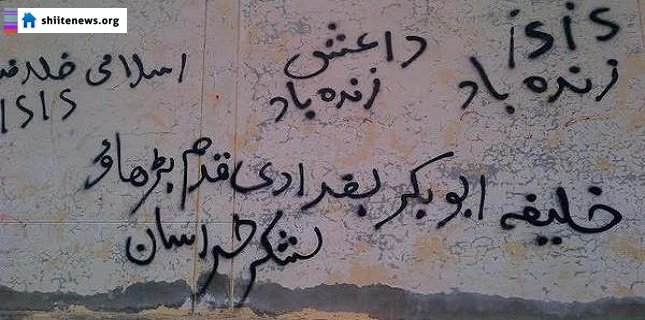 shiitenews.org
isis
زنده باد
داعش
زنده باد
اسلامی
ISIS
خلیفہ ابوبکر بغدادی قدم بڑھاؤ
لشکر خراسان